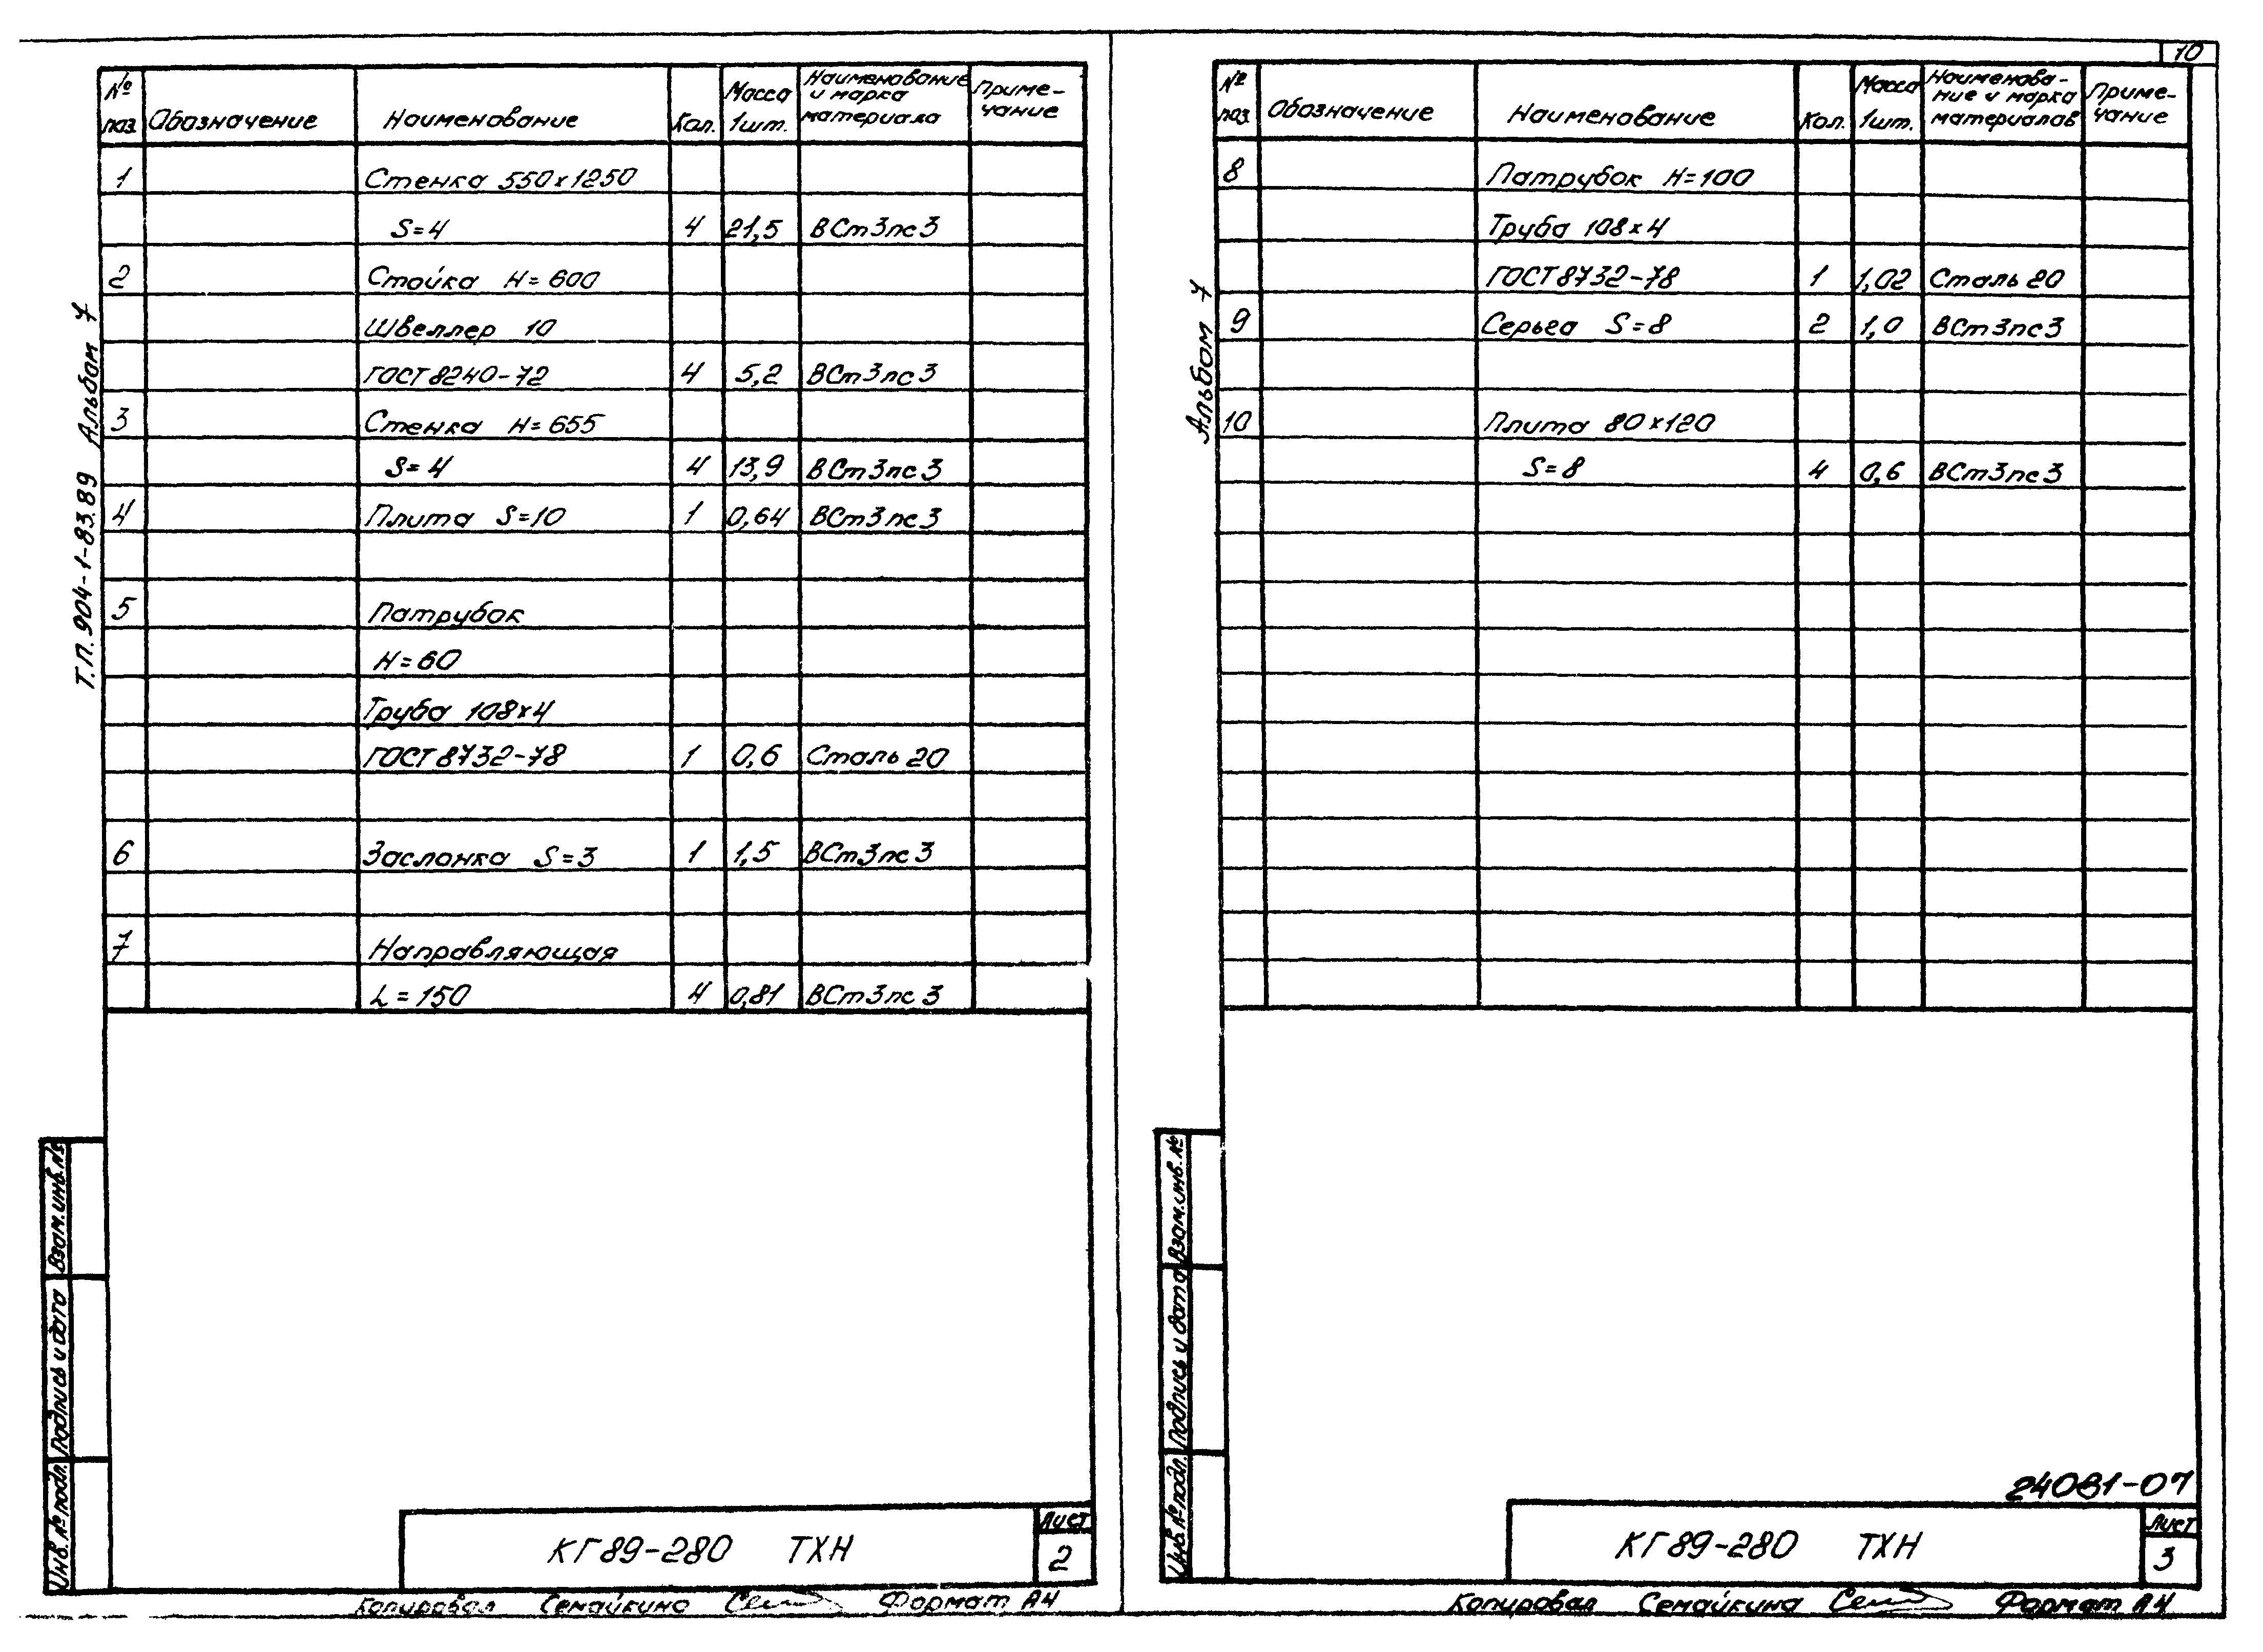 10
№ поз. Обозначение Наименование Кол. Масса 1шт. Наименование и марка материала Примечание
1 Стенка 550х1250
S=4 4 21,5 ВСт3пс3
2 Стойка Н=600
Швеллер 10
ГОСТ 8240-72 4 5,2 ВСт3пс3
3 Стенка Н=655
S=4 4 13,9 ВСт3пс3
4 Плита S=10 1 0,64 ВСт3пс3
5 Патрубок
Н=60
Труба 108х4
ГОСТ 8732-78 1 0,6 Сталь 20
6 Заслонка S=3 1 1,5 ВСт3пс3
7 Направляющая
L=150 4 0,81 ВСт3пс3
Т.П. 904-1-83.89 Альбом 7
Взам.инв.№
Подпись и дата
Инв.№подл.
КГ89-280 ТХН
Лист
2
Копировал Семайкина Формат А4
№ поз. Обозначение Наименование Кол. Масса 1шт. Наименование и марка материалов Примечание
8 Патрубок Н=100
Труба 108х4
ГОСТ 8732-78 1 1,02 Сталь 20
9 Серьга S=8 2 1,0 ВСт3пс3
10 Плита 80х120
S=8 4 0,6 ВСт3пс3
Альбом 7
Взам.инв.№
Подпись и дата
Инв.№подл.
24081-07
КГ89-280 ТХН
Лист
3
Копировал Семайкина Формат А4